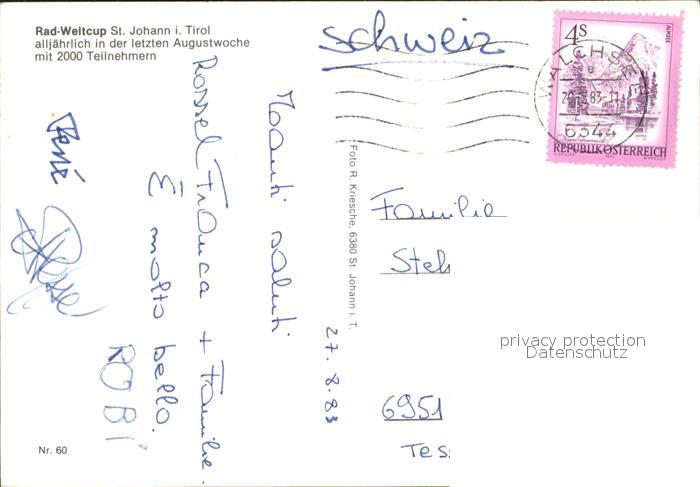 Rad-Weltcup St. Johann i. Tirol
alljährlich in der letzten Augustwoche
mit 2000 Teilnehmern
Schweiz
4S
ALMSEE
WALCHSEE
83-11
6344
REPUBLIK ÖSTERREICH
27.8.83
Tanti saluti
Rossel Franca + Familie.
È molto bello.
ROBI
René
Foto R. Kriesche, 6380 St. Johann i. T.
Familie
Steh
privacy protection
Datenschutz
6951
Tes
Nr. 60